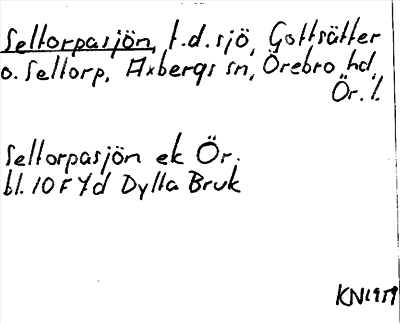 Seltorpasjön, t.d. sjö, Gottsätter
o. Seltorp, Axbergs sn, Örebro hd,
Ör. l.
Seltorpasjön ek Ör.
bl. 10 F 7d Dylta Bruk